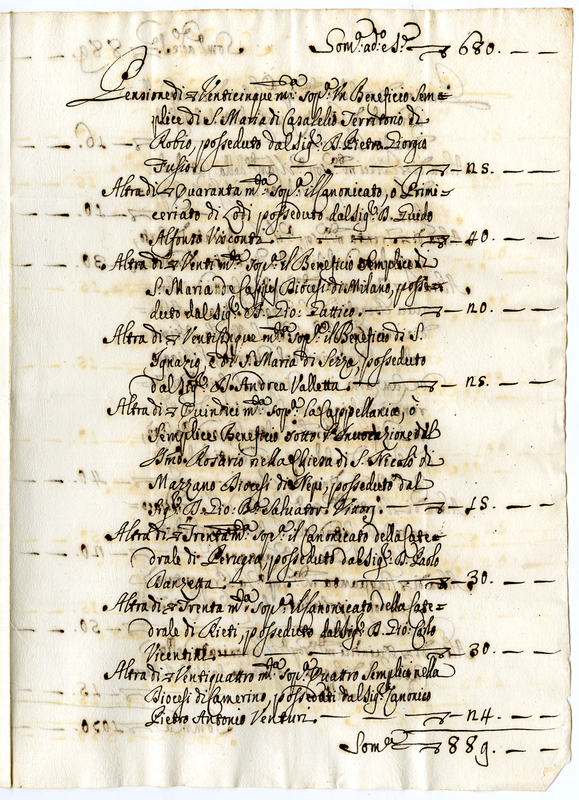 Som.a ad.e S.i 680.
Pensione di Venticinque m.ta sop.a Vn Beneficio Sem=
plice di S. Maria di Casalelio Territorio di
Robio, posseduto dal Sig.r D. Pietro Giorgio
Fusio 25.
Altra di Quaranta m.ta sop.a il Canonicato, o Primi=
ceriato di Lodi posseduto dal Sig.r D. Guido
Alfonso Visconti 40.
Altra di Venti m.ta sop.a il Beneficio Semplice di
S. Maria de Diocesi di Milano, posse=
duto dal Sig.r D. Gio: Tattico. 20.
Altra di Venticinque m.ta sop.a il Beneficio di S.
Ignazio, e di S. Maria di Sezza, posseduto
dal Sig.r D. Andrea Valletta 25.
Altra di Quindici m.ta sop.a la Cappellania, ò
Semplice Beneficio sotto l'Invocazione del
Smo Rosario nella Chiesa di S. Nicolò di
Mazzano Diocesi di Nepi, posseduto dal
Sig.r D. Gio: Salvatore 15.
Altra di Trenta m.ta sop.a il Canonicato della Cate=
drale di Perugia, posseduto dal Sig.r D. Paolo
Banzetta 30.
Altra di Trenta m.ta sop.a il Canonicato della Cate=
drale di Rieti, posseduto dal Sig.r D. Gio: Carlo
Vicentini 30.
Altra di Ventiquattro m.ta sop.a Quattro Semplici nella
Diocesi di Camerino, posseduti dal Sig.r Canonico
Pietro Antonio Venturi 24.
Som.a 889.